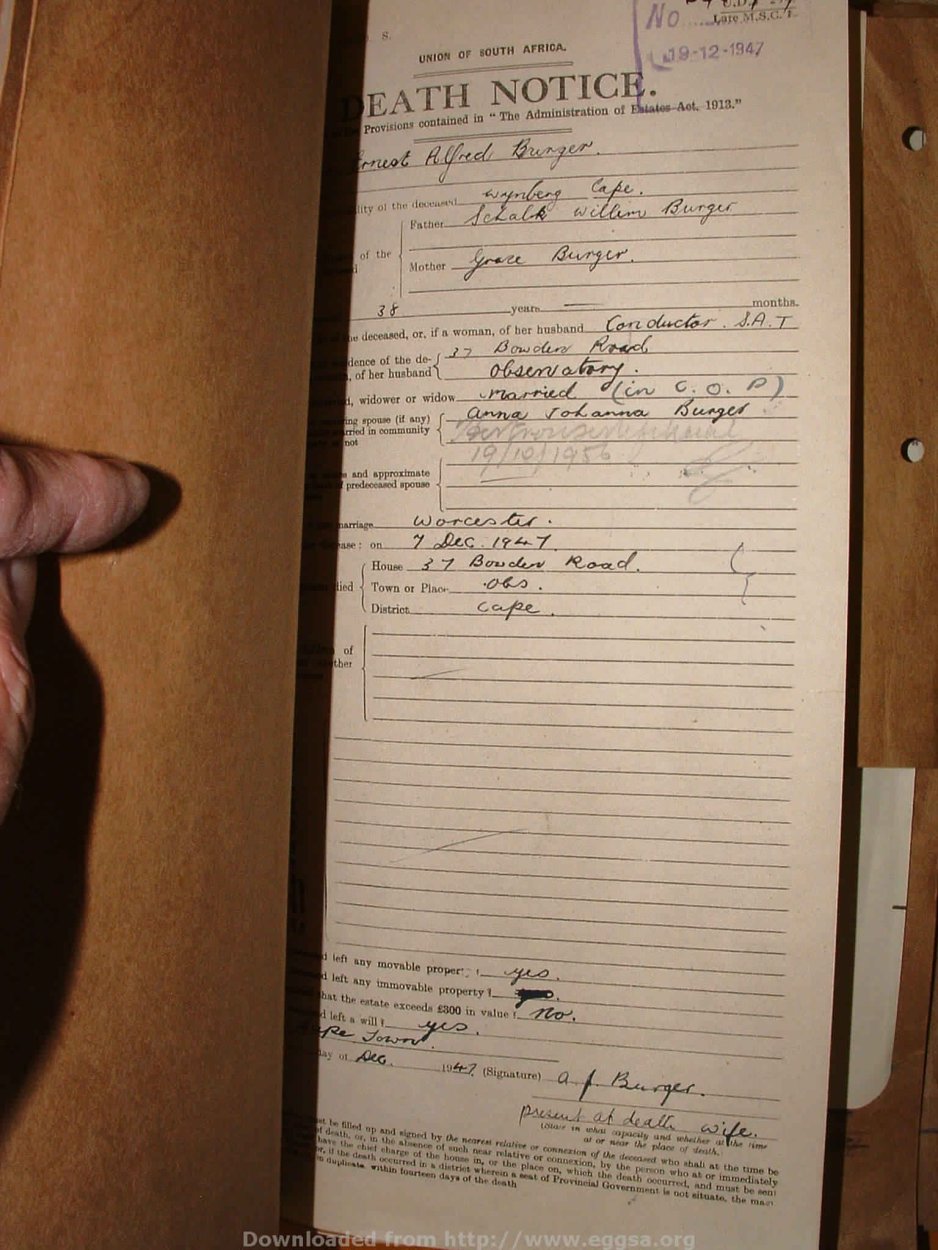 S.
No
Late M.S.C.
19-12-1947
UNION OF SOUTH AFRICA.
DEATH NOTICE.
Provisions contained in “ The Administration of Estates Act, 1913.”
Ernest Alfred Burger.
lity of the deceased Wynberg Cape.
Father Schalk Willem Burger
of the
Mother Grace Burger.
38 years months.
he deceased, or, if a woman, of her husband Conductor. S.A.T
dence of the de- 37 Bowden Road
, of her husband Observatory.
d, widower or widow married (in C.O.P)
ving spouse (if any) Anna Johanna Burger
rried in community
not
19/10/1956
and approximate
f predeceased spouse
marriage Worcester.
ase : on 7 Dec. 1947
House 37 Bowden Road.
died Town or Place Obs.
District Cape.
of
ther
d left any movable property ? yes.
d left any immovable property ?
that the estate exceeds £300 in value ? No.
d left a will ? yes.
Cape Town.
day of Dec. 1947 (Signature) A. J. Burger.
present at death wife.
(State in what capacity and whether at the time
at or near the place of death.
st be filled up and signed by the nearest relative or connexion of the deceased who shall at the time be
f death, or, in the absence of such near relative or connexion, by the person who at or immediately
have the chief charge of the house in, or the place on, which the death occurred, and must be sent
or, if the death occurred in a district wherein a seat of Provincial Government is not situate, the
in duplicate, within fourteen days of the death
Downloaded from http://www.eggsa.org